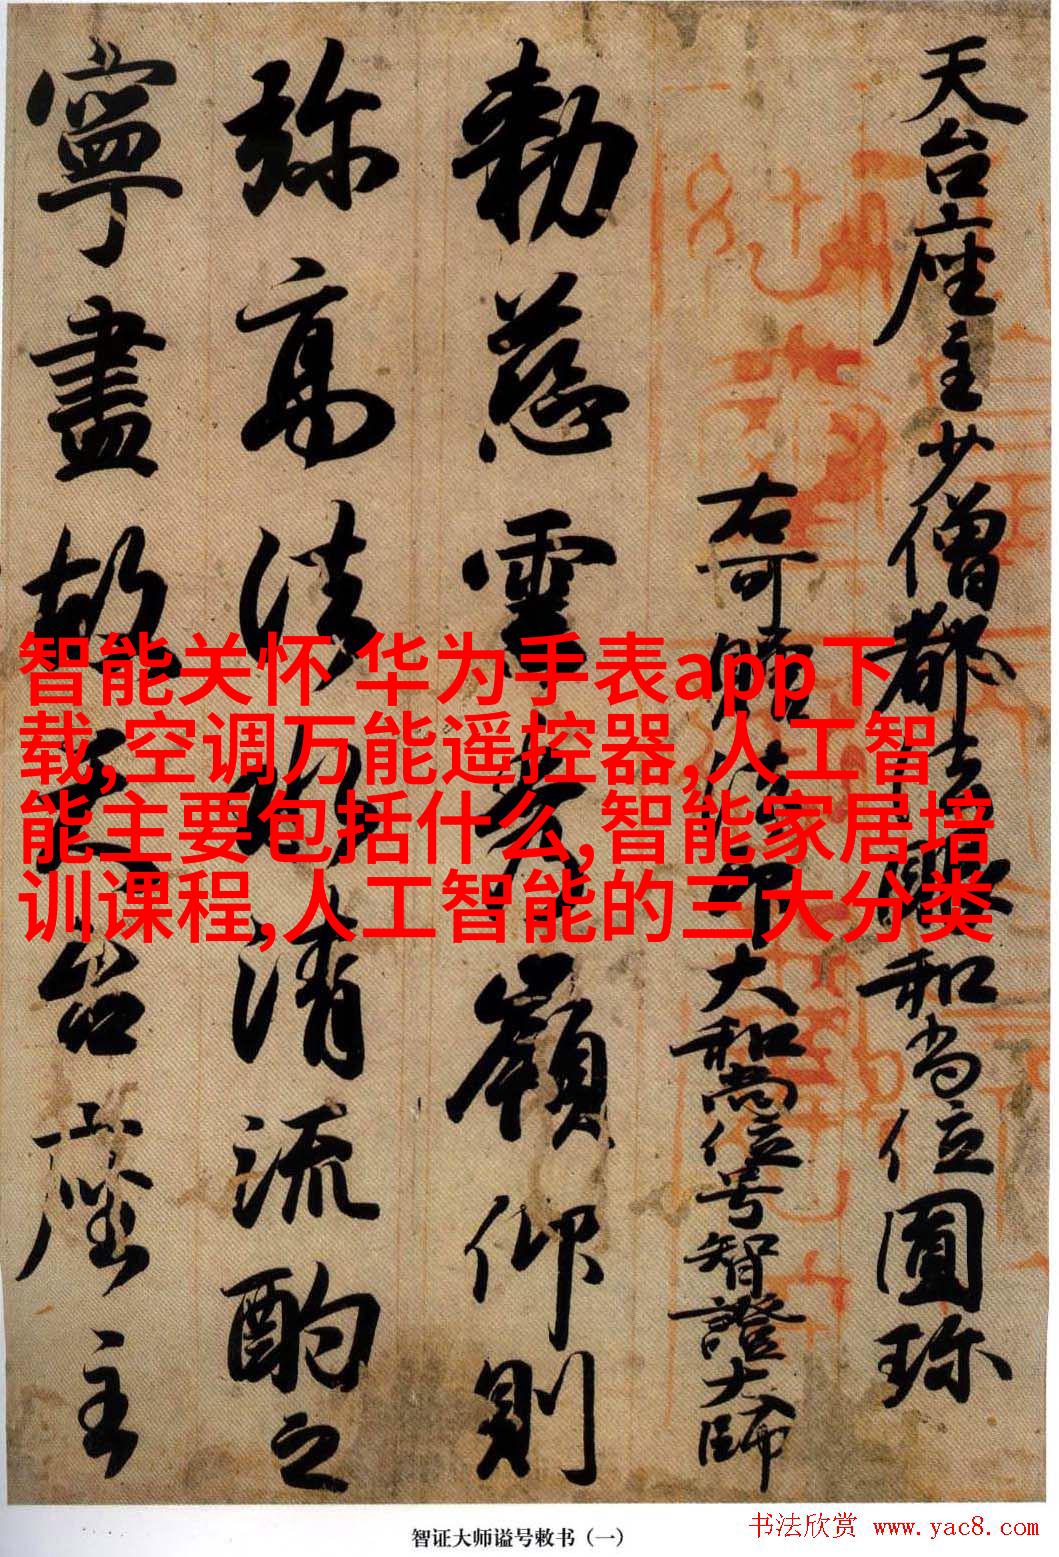 天台座主少僧都法眼和尚位圓珍
右可贈法印大和尚位号智證大師
勅慈雲嶺仰則
弥高法清流酌之
寧盡故台座主
智能关怀 华为手表app下
载,空调万能遥控器,人工智
能主要包括什么,智能家居培
训课程,人工智能的三大分类
智证大师谥号敕书（一）
书法欣赏 www.yac8.com